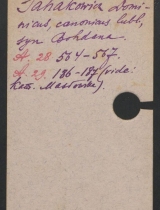 Tanakowia Domi-
nicus, canonicus lubl.,
syn Bohdana.
A. 28. 564-567.
A. 29. 186-187 (vide:
Kas. Masłowski).